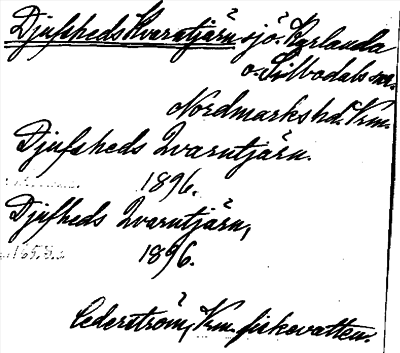 Djufsheds Kvarntjärn sjö. Karlanda
o. Sillbodals snr.
Nordmarks hd. Vrm.
Djufsheds Qvarntjärn.
1896.
Djufheds Qvarntjärn,
1896.
Cederström, Vrm. fiskevatten.